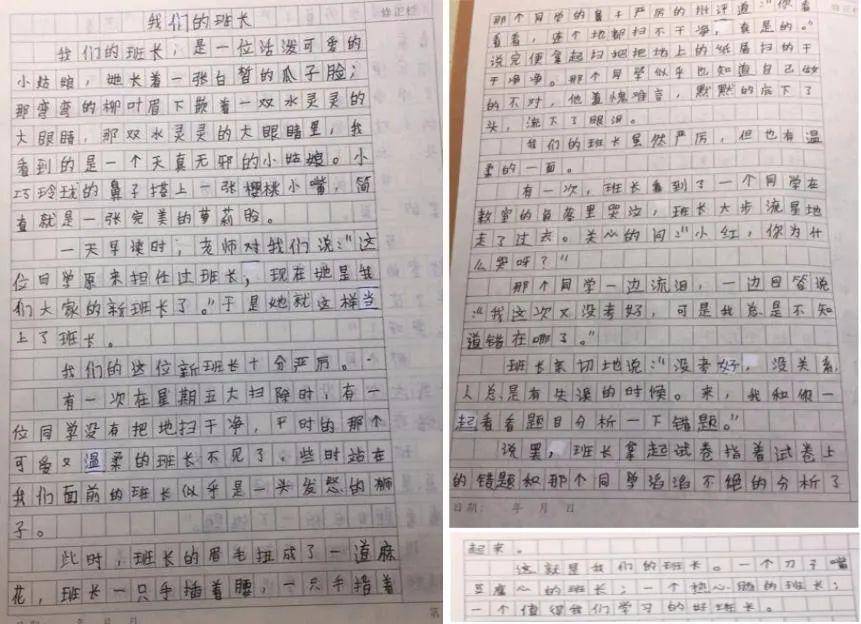 我们的班长
我们的班长，是一位活泼可爱的
小姑娘，她长着一张白皙的瓜子脸；
那弯弯的柳叶眉下嵌着一双水灵灵的
大眼睛，那双水灵灵的大眼睛里，我
看到的是一个天真无邪的小姑娘。小
巧玲珑的鼻子搭上一张樱桃小嘴，简
直就是一张完美的萝莉脸。
一天早读时，老师对我们说：“这
位同学原来担任过班长，现在她是我
们大家的新班长了。”于是她就这样当
上了班长。
我们的这位新班长十分严厉。
有一次在星期五大扫除时，有一
位同学没有把地扫干净，平时的那个
可爱又温柔的班长不见了，些时站在
我们面前的班长似乎是一头发怒的狮
子。
此时，班长的眉毛扭成了一道麻
花，班长一只手插着腰，一只手指着
那个同学的鼻子严厉的批评道：“你看
看看，连个地都扫不干净，真是的。”
说完便拿起扫把把地上的纸屑扫的干
干净净。那个同学似乎也知道自己做
的不对，他羞愧难言，默默的底下了
头，流下了眼泪。
我们的班长虽然严厉，但也有温
柔的一面。
有一次，班长看到了一个同学在
教室的角落里哭泣，班长大步流星地
走了过去。关心的问：“小红，你为什
么哭呀？”
那个同学一边流泪，一边回答说
：“我这次又没考好，可是我总是不知
道错在哪了。”
班长亲切地说：“没考好，没关系，
人总是有失误的时候。来，我和你一
起看看题目分析一下错题。”
说罢，班长拿起试卷指着试卷上
的错题和那个同学滔滔不绝的分析了
日期： 年 月 日
起来。
这就是我们的班长。一个刀子嘴
豆腐心的班长；一个热心肠的班长；
一个值得我们学习的好班长。